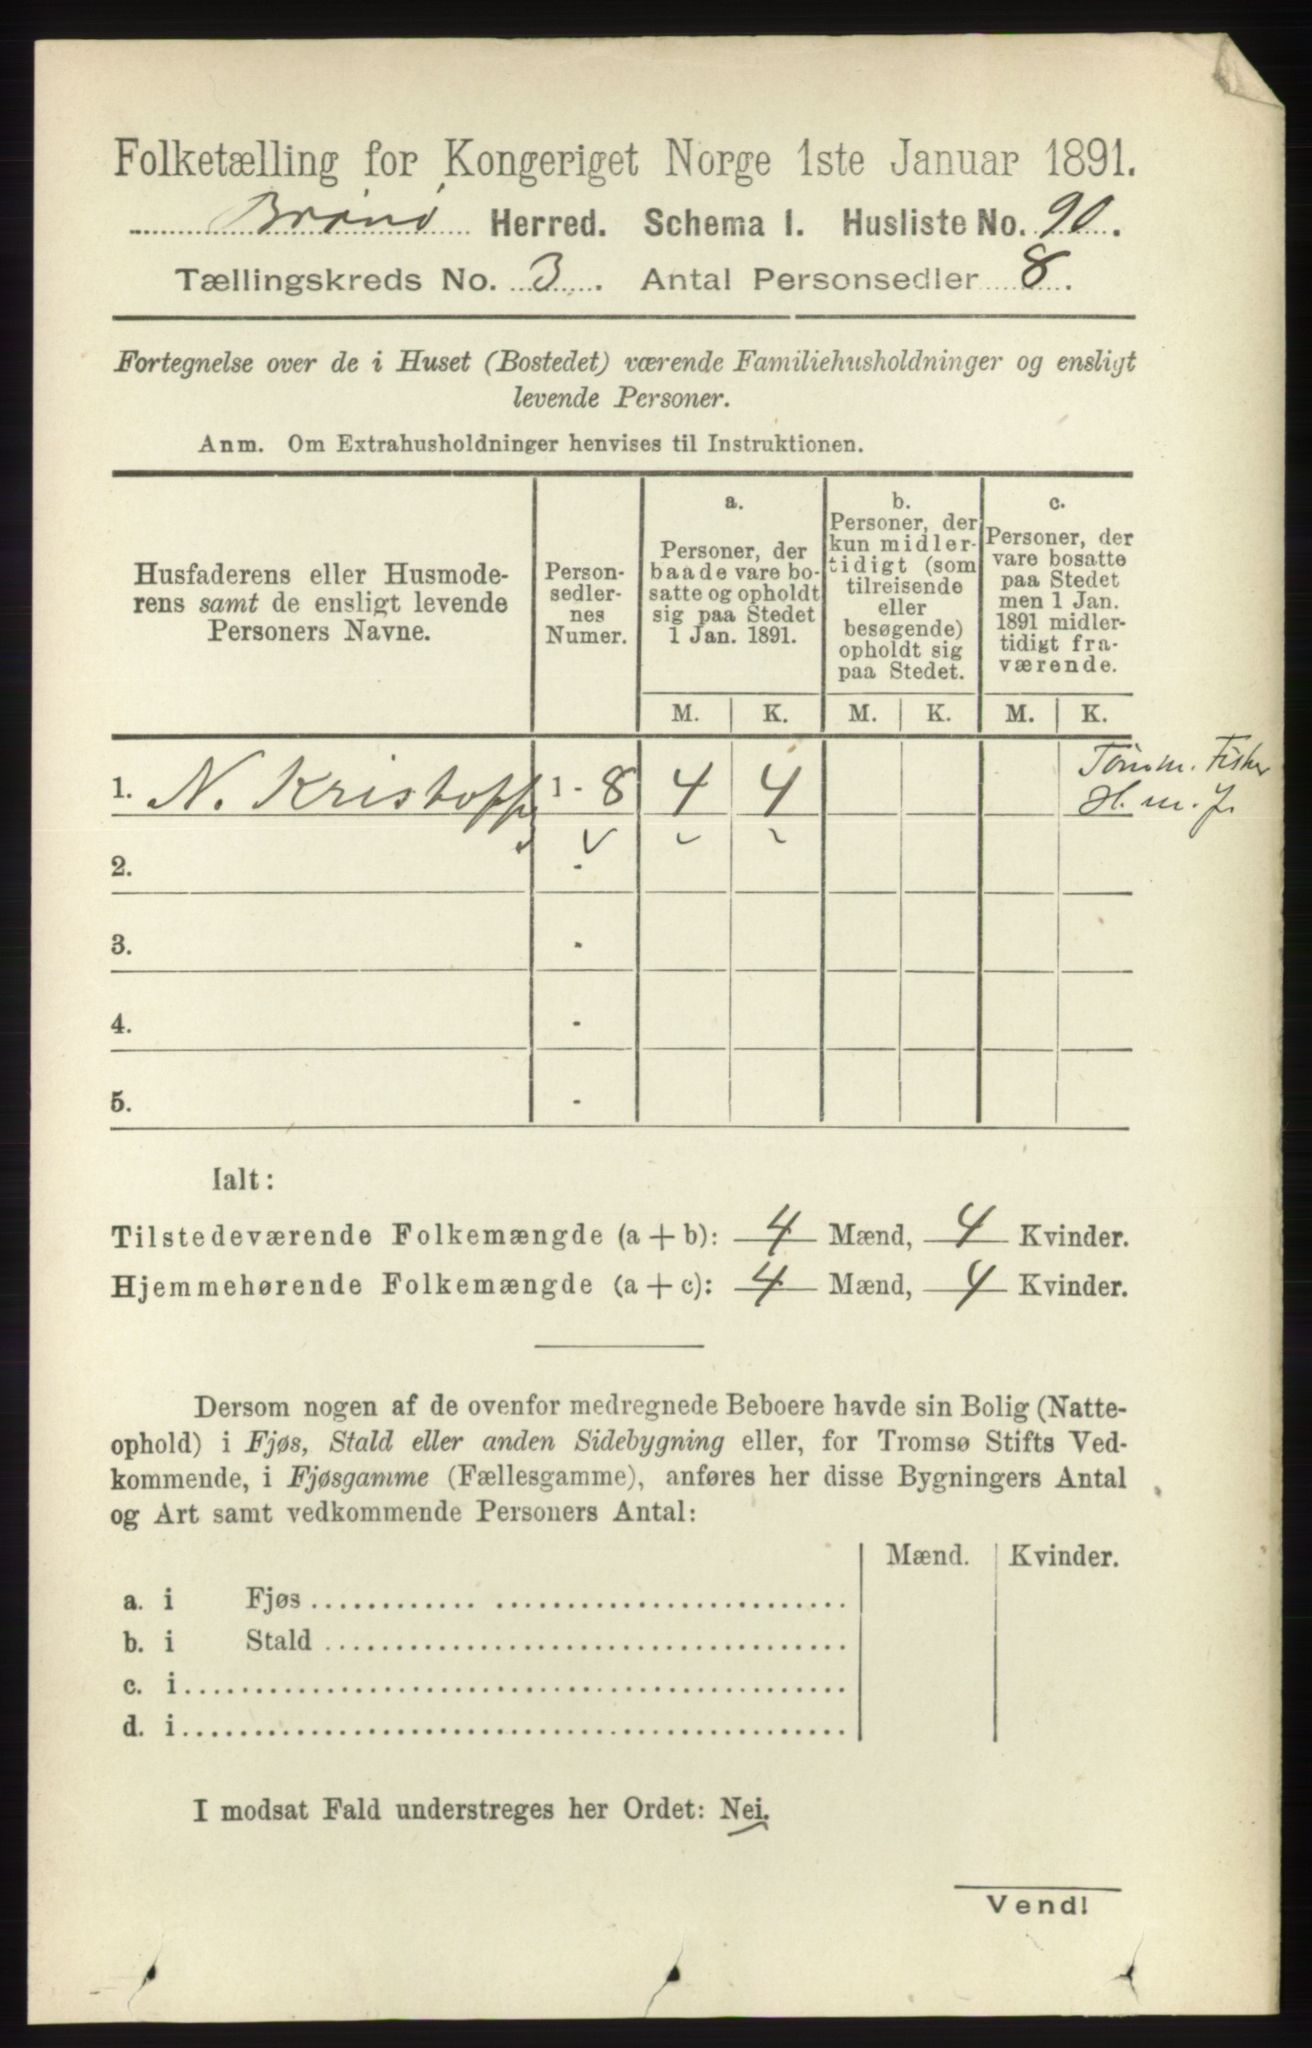 Folketælling for Kongeriget Norge 1ste Januar 1891.
Brønø Herred. Schema I. Husliste No. 90.
Tællingskreds No. 3. Antal Personsedler 8.
Fortegnelse over de i Huset (Bostedet) værende Familiehusholdninger og ensligt
levende Personer.
Anm. Om Extrahusholdninger henvises til Instruktionen.
Husfaderens eller Husmode-
rens samt de ensligt levende
Personers Navne.
Person-
sedler-
nes
Numer.
a.
Personer, der
baade vare bo-
satte og opholdt
sig paa Stedet
1 Jan. 1891.
b.
Personer, der
kun midler-
tidigt (som
tilreisende
eller
besøgende)
opholdt sig
paa Stedet.
c.
Personer, der
vare bosatte
paa Stedet
men 1 Jan.
1891 midler-
tidigt fra-
værende.
M. K. M. K. M. K.
1. N. Kristoff 1 - 8 4 4
Tømm. Fisker
H. m. J.
2. -
3. -
4. -
5. -
Ialt:
Tilstedeværende Folkemængde (a + b): 4 Mænd, 4 Kvinder.
Hjemmehørende Folkemængde (a + c): 4 Mænd, 4 Kvinder.
Dersom nogen af de ovenfor medregnede Beboere havde sin Bolig (Natte-
ophold) i Fjøs, Stald eller anden Sidebygning eller, for Tromsø Stifts Ved-
kommende, i Fjøsgamme (Fællesgamme), anføres her disse Bygningers Antal
og Art samt vedkommende Personers Antal:
Mænd. Kvinder.
a. i Fjøs
b. i Stald
c. i
d. i
I modsat Fald understreges her Ordet: Nei.
Vend!